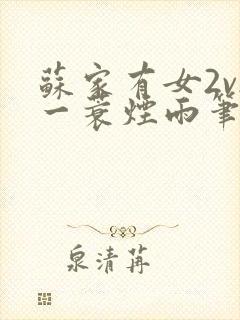 蘇家有女2v
一蓑煙雨筆
泉清苒